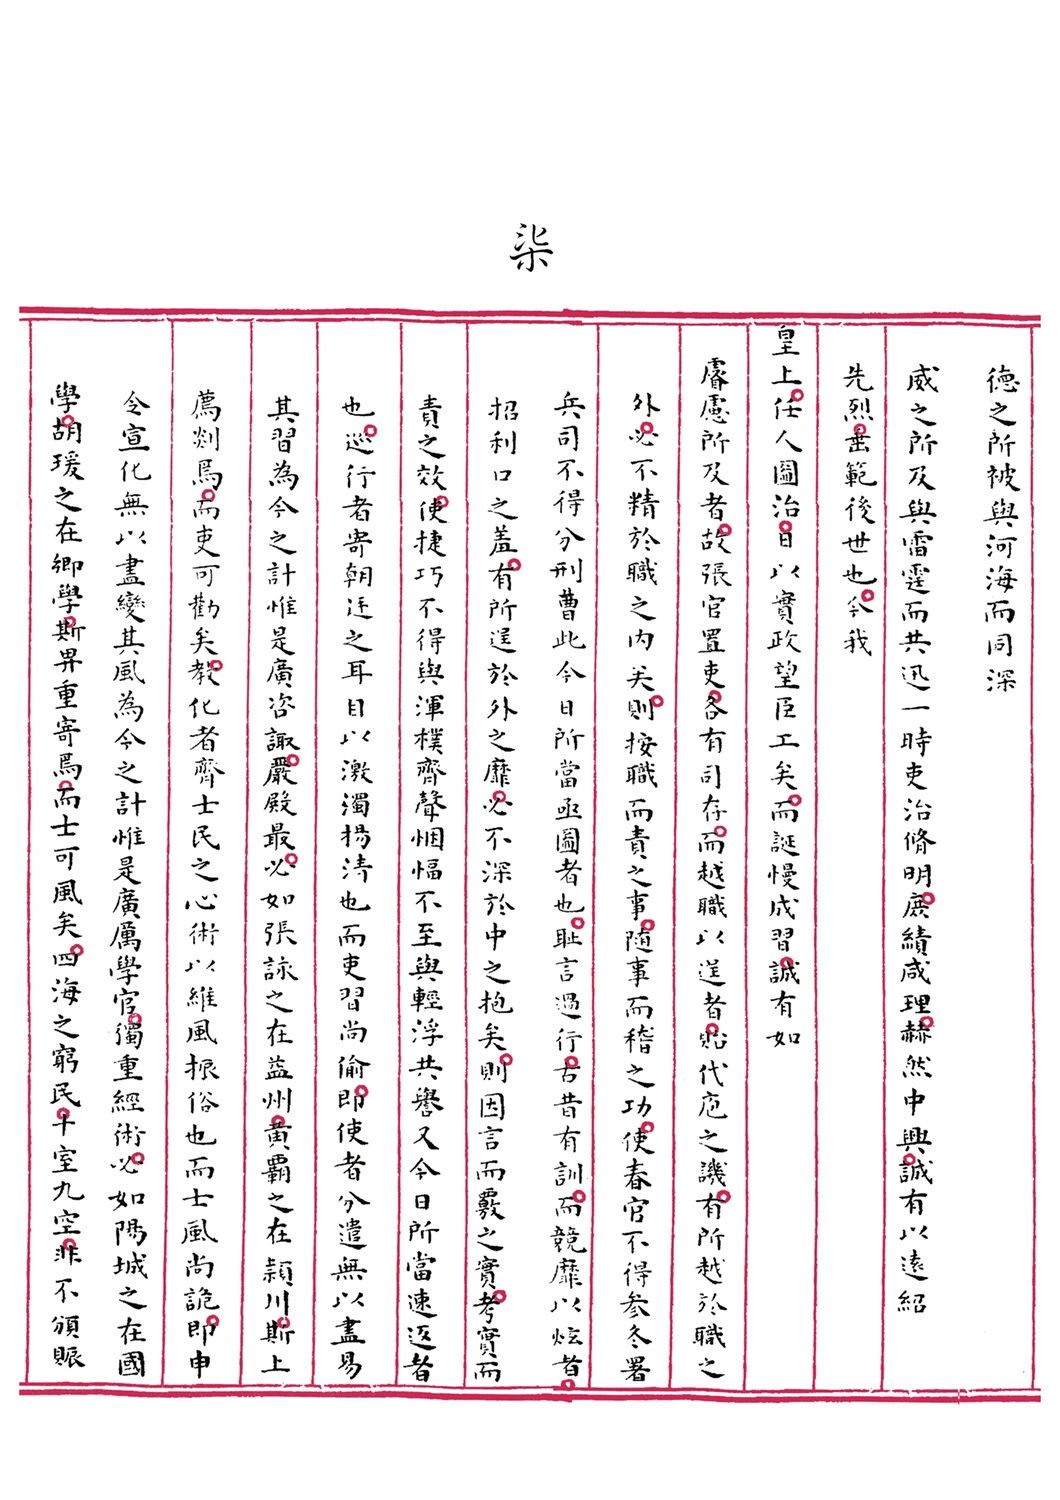 柒
德之所被與河海而同深
威之所及與雷霆而共迅一時吏治脩明庶績咸理赫然中興誠有以遠紹
先烈垂範後世也今我
皇上任人圖治日以實政望臣工矣而誕慢成習誠有如
睿慮所及者故張官置吏各有司存而越職以逞者貽代庖之譏有所越於職之
外必不精於職之内矣則按職而責之事隨事而稽之功使春官不得參冬署
兵司不得分刑曹此今日所當亟圖者也恥言過行古昔有訓而競靡以炫者
招利口之羞有所逞於外之靡必不深於中之抱矣則因言而覈之實考實而
責之效使捷巧不得與渾樸齊聲悃愊不至與輕浮共譽又今日所當速返者
也巡行者寄朝廷之耳目以激濁揚清也而吏習尚偷即使者分遣無以盡易
其習為今之計惟是廣咨諏嚴殿最必如張詠之在益州黄霸之在潁川斯上
薦剡焉而吏可勸矣教化者齊士民之心術以維風振俗也而士風尚詭即申
令宣化無以盡變其風為今之計惟是廣厲學官獨重經術必如陽城之在國
學胡瑗之在鄉學斯畀重寄焉而士可風矣四海之窮民十室九空非不頒賑